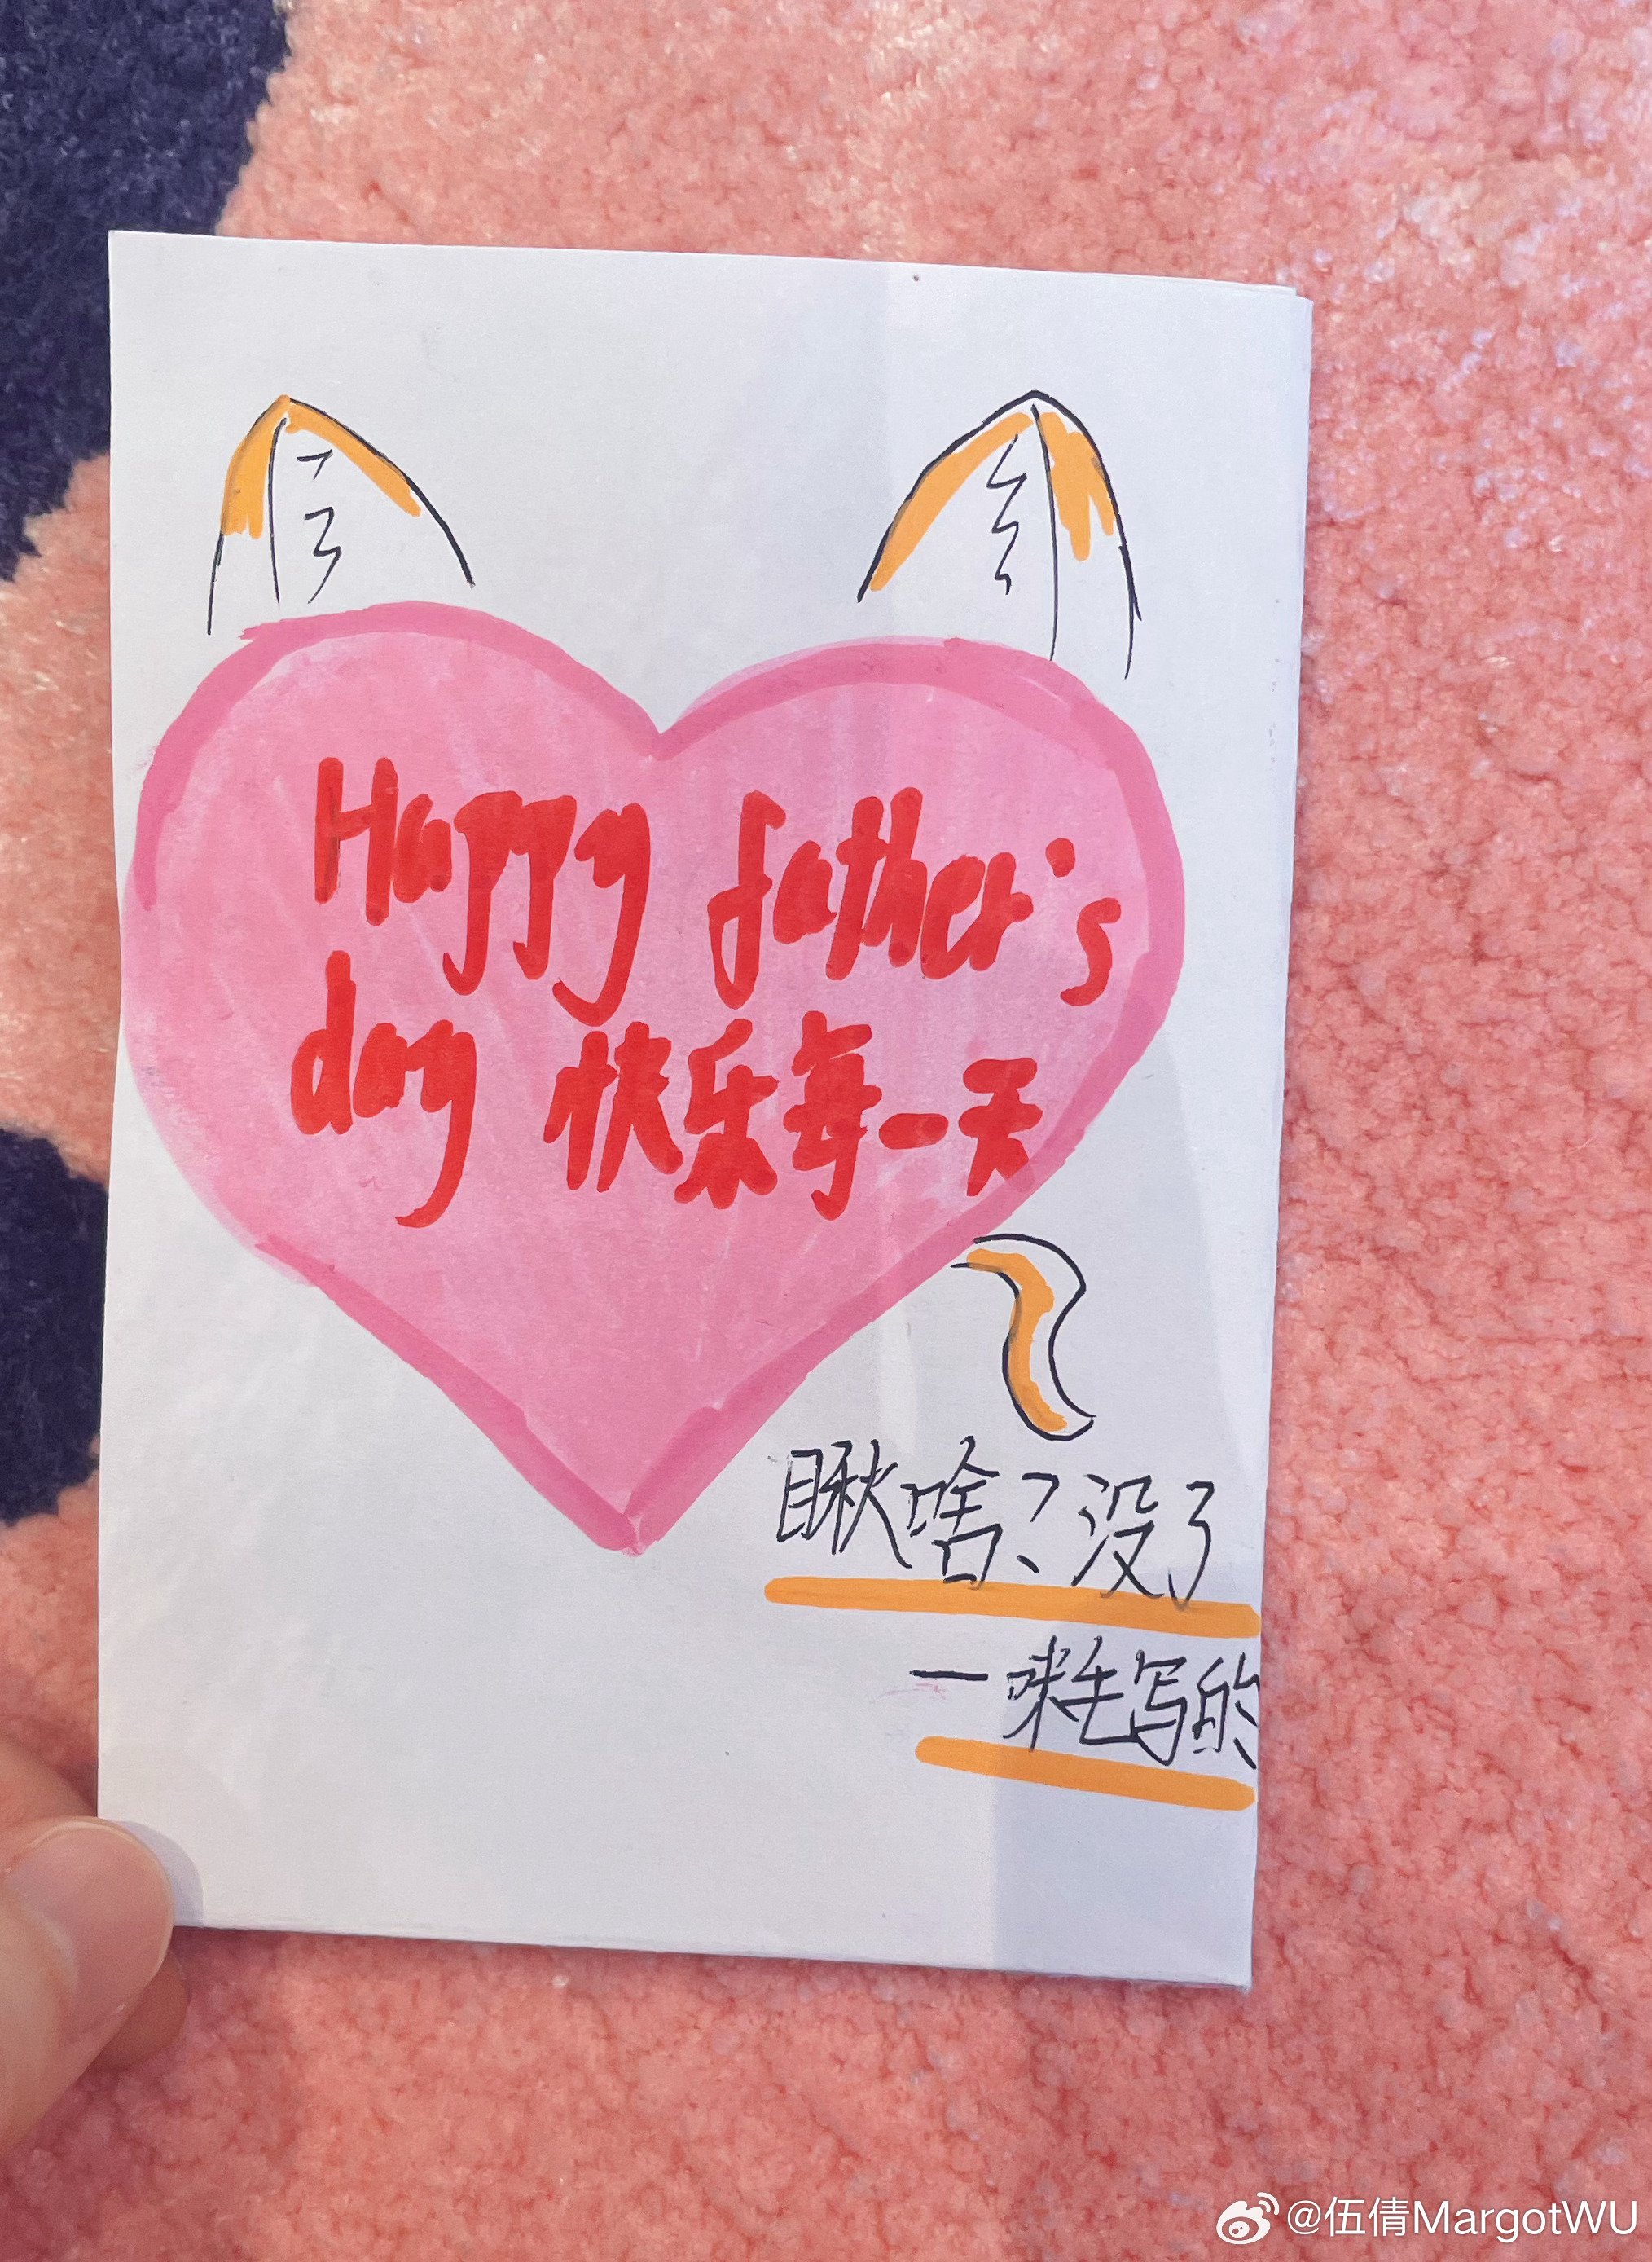 Happy father's
day 快乐每一天
瞅啥？没了
一咪毛写的
@伍倩MargotWU